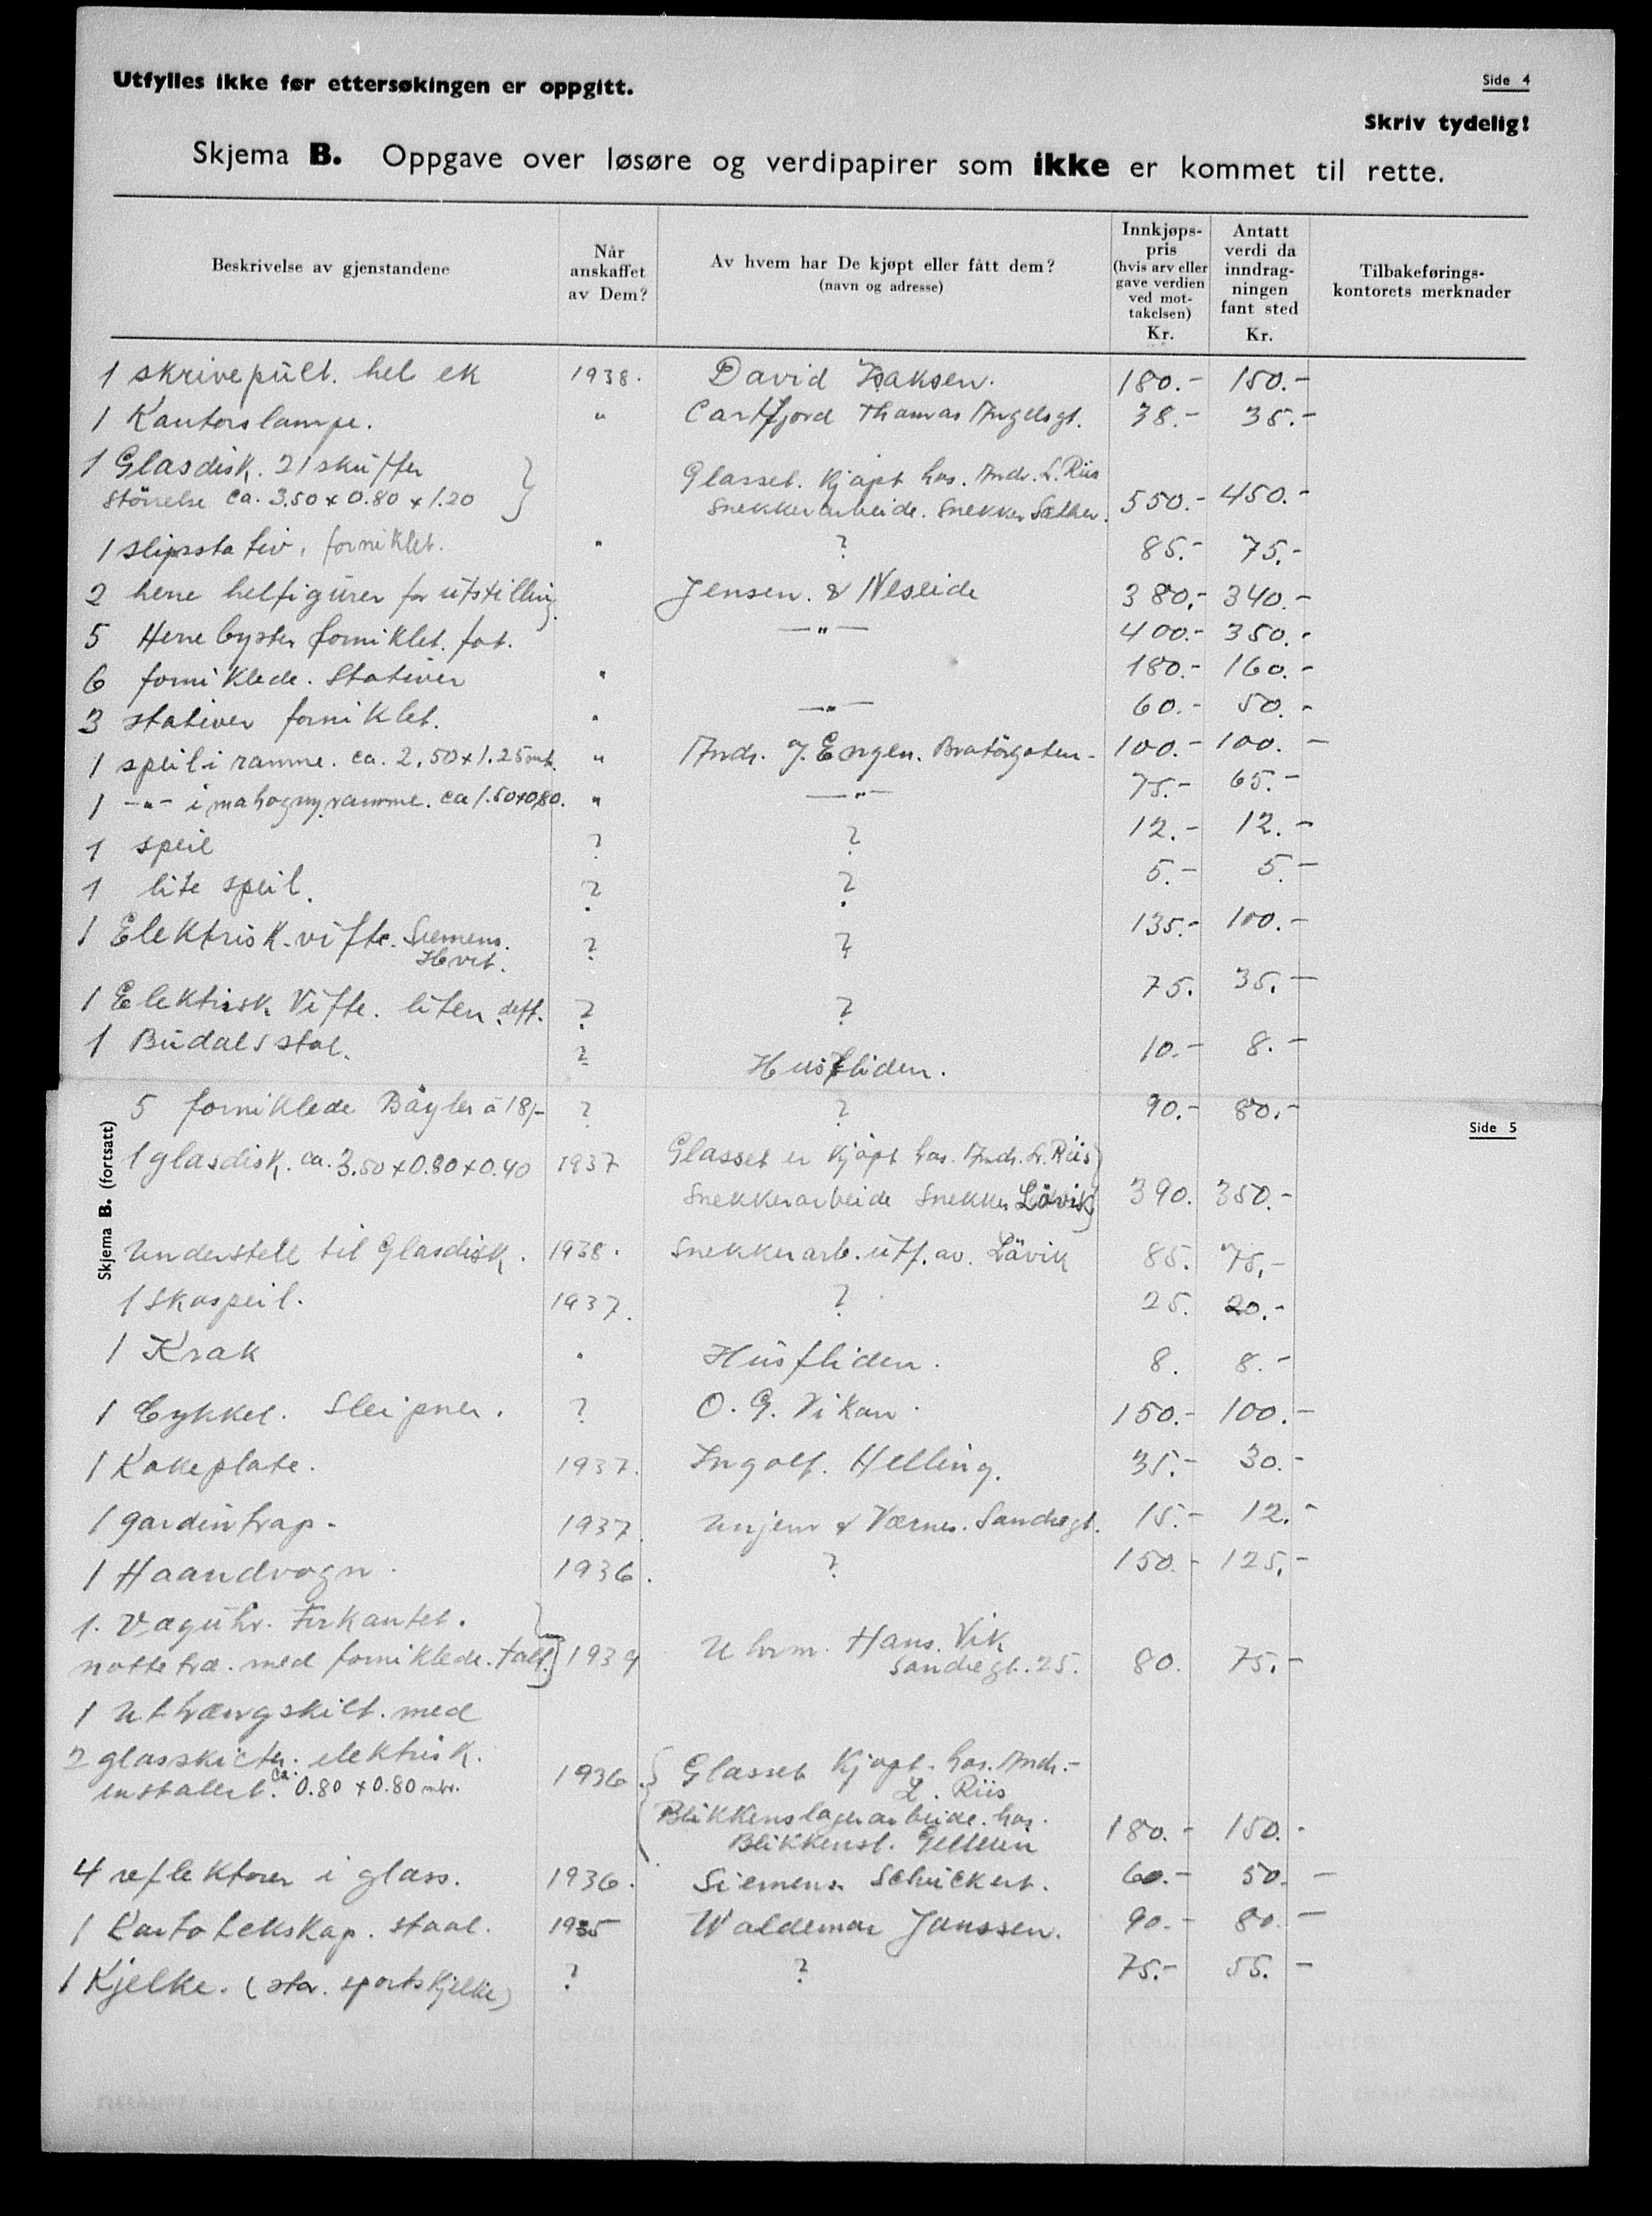 Utfylles ikke før ettersøkingen er oppgitt.
Side 4
Skriv tydelig!
Skjema B. Oppgave over løsøre og verdipapirer som ikke er kommet til rette.
Beskrivelse av gjenstandene
Når anskaffet av Dem?
Av hvem har De kjøpt eller fått dem? (navn og adresse)
Innkjøps-pris (hvis arv eller gave verdien ved mot-takelsen) Kr.
Antatt verdi da inndrag-ningen fant sted Kr.
Tilbakeførings-kontorets merknader
1 skrivepült. hel ek 1938. David Isaksen. 180.- 150.-
1 Kontorslampe. " Cartfjord Thomas Angelsgt. 38.- 35.-
1 Glasdisk. 21 sküffer Glasset. Kjöpt hos. Andr. L. Riis
Störrelse ca. 3.50 x 0.80 x 1.20 } Snekkerarbeide. Snekker Sæther. 550.- 450.-
1 slipsstativ, forniklet. " ? 85.- 75.-
2 herre helfigürer for ütstilling. Jensen. & Neseide 380.- 340.-
5 Herrebyster forniklet. fot. —"— 400.- 350.-
6 forniklede. Stativer " 180.- 160.-
3 stativer forniklet. " —"— 60.- 50.-
1 speil i ramme. ca. 2.50 x 1.25 mt. " Andr. J. Engen. Bratörgaten- 100.- 100.-
1 -"- i mahogny ramme. ca 1.50x0,80. " —"— 75.- 65.-
1 speil ? ? 12.- 12.-
1 lite speil. ? ? 5.- 5.-
1 Elektrisk. vifte. Siemens. ? ? 135.- 100.-
Hvit.
1 Elektrisk. Vifte. liten. deff. ? ? 75. 35.-
1 Büdalsstol. ? Husfliden. 10.- 8.-
5 forniklede Böyler à 18/- ? ? 90.- 80.-
Side 5
Skjema B. (fortsatt)
1 glasdisk. ca. 3.50 x 0.80 x 0.40 1937 Glasset er kjöpt hos. Andr. L. Riis }
Snekkerarbeide Snekker Lövik 390. 350.-
Understell til Glasdisk. 1938. Snekkerarb. ütf. av. Lövik 85. 75.-
1 Skospeil. 1937. ? 25. 20.-
1 Krak " Hüsfliden. 8. 8.-
1 Cykkel. Sleipner. ? O. G. Vikan. 150.- 100.-
1 Kokeplate. 1937. Ingolf. Helling. 35.- 30.-
1 gardintrap- 1937. Unjem & Værnes. Sandregt. 15.- 12.-
1 Haandvogn. 1936. ? 150.- 125.-
1. Vægühr. Firkantet. }
nøttetræ. med forniklede. tall. } 1939 Uhrm. Hans. Vik
Sandregt. 25. 80. 75.-
1 Uthængskilt. med
2 glasskilter. elektrisk. 1936. { Glasset Kjöpt. hos. Andr.-
installert. ca. 0.80 x 0.80 mtr. L. Riis
Blikkenslagerarbeide. hos.
Blikkensl. 180.- 150.-
4 reflektorer i glass. 1936. Siemens. Schückert. 60.- 50.-
1 Kartotekskap. staal. 1935 Waldemar Janssen. 90.- 80.-
1 Kjelke. (stor. sportskjelke) ? ? 75.- 55.-